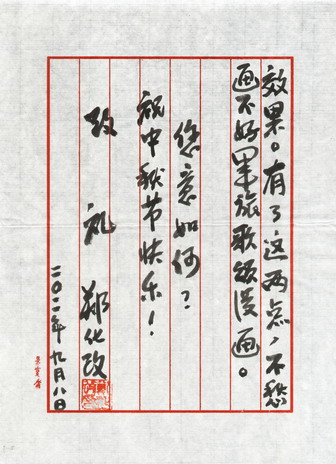 效果。有了这两点，不愁
画不好军旅歌颂漫画。
您意如何？
祝中秋节快乐！
致礼 郑化改
二〇一一年九月八日
荣宝斋